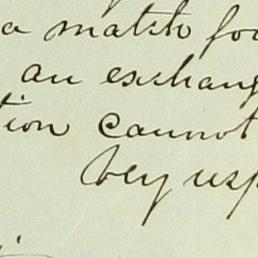 a match for
an exchang
tion cannot
Very resp